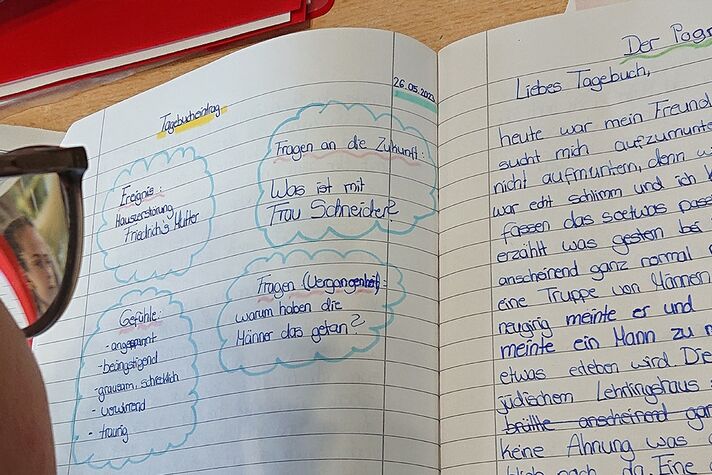 Tagebucheintrag
26.05.202
Ereignis:
Hauszerstörung
Friedrich's Mutter
Fragen an die Zukunft:
Was ist mit
Frau Schneider?
Gefühle:
- angespannt
- beängstigend
- grausam, schrecklich
- verwirrend
- traurig
Fragen (Vergangenheit):
warum haben die
Männer das getan?
Der Pogr
Liebes Tagebuch,
heute war mein Freund
sucht mich aufzumunte
nicht aufmuntern, denn
war echt schlimm und ich
fassen das soetwas pass
erzählt was gestern bei
anscheinend ganz normal
eine Truppe von Männen
neugirig meinte er und
meinte ein Mann zu
etwas erleben wird. Die
jüdischen Lehrlingshaus
brüllte anscheinend gan
keine Ahnung was